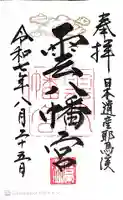 奉拝
日本遺産耶馬渓
雲八幡宮
令和七年八月二十五日